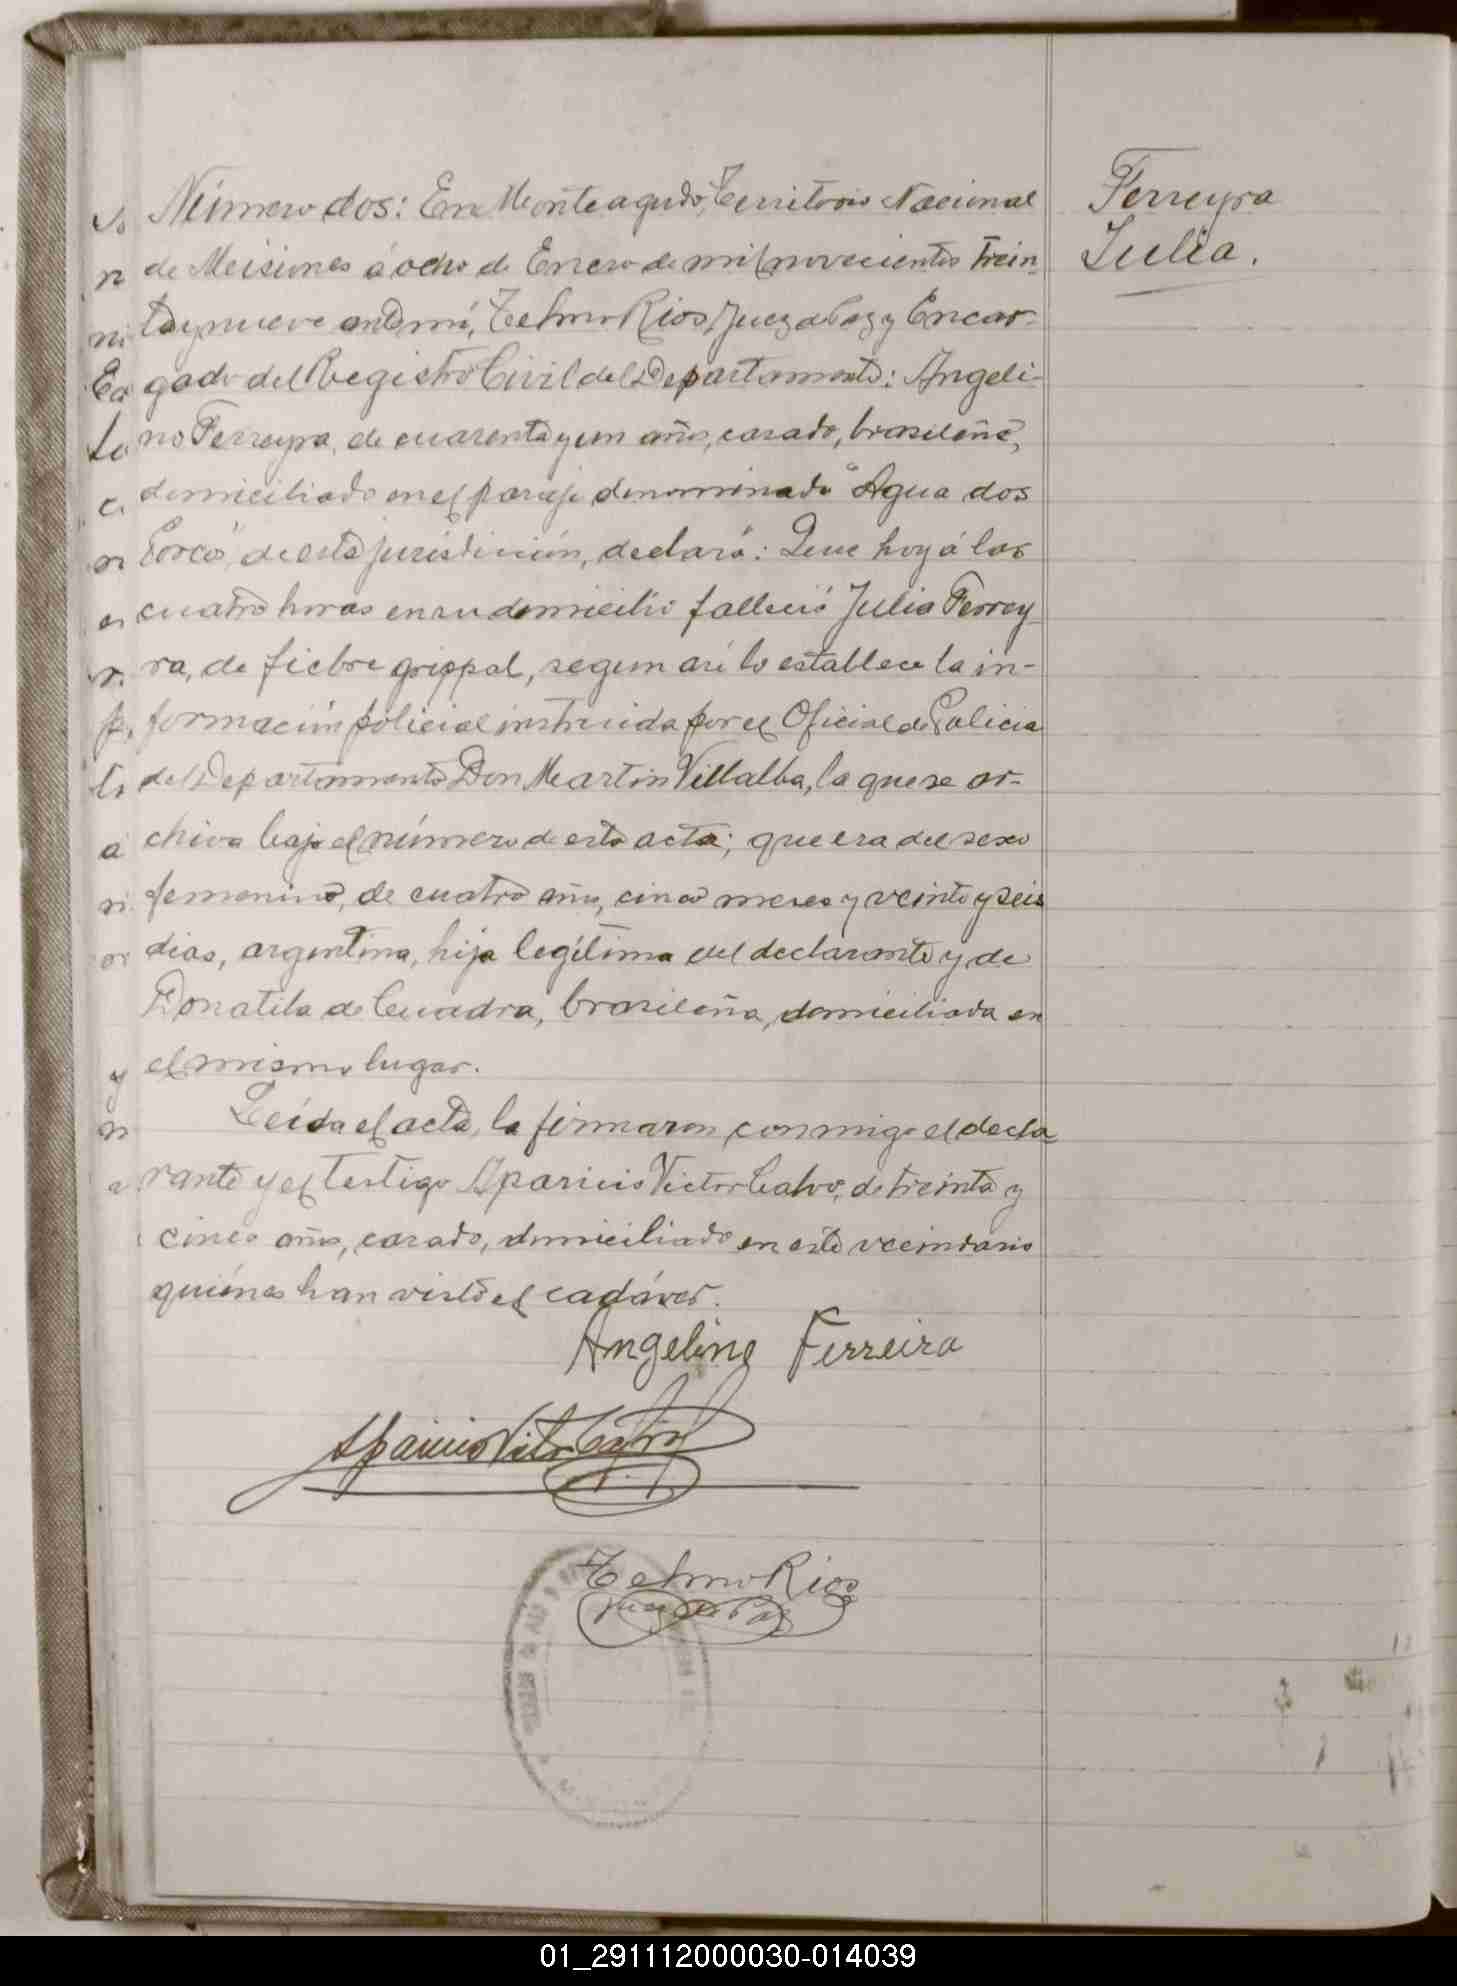 Ferreyra
Julia.
Número dos: En Monteagudo, Territorio Nacional
de Misiones á ocho de Enero de mil novecientos trein-
ta y nueve ante mí, Telmo Rios, Juez de Paz y Encar-
gado del Registro Civil del Departamento: Angeli-
no Ferreyra, de cuarenta y un años, casado, brasileño,
domiciliado en el paraje denominado "Agua dos
Porco" de esta jurisdicción, declaró: Que hoy á las
cuatro horas en su domicilio falleció Julia Ferrey-
ra, de fiebre grippal, segun así lo establece la in-
formación policial instruida por el Oficial de Policia
del Departamento Don Martin Villalba, la que se ar-
chiva bajo el número de esta acta; que era del sexo
femenino, de cuatro años, cinco meses y veinte y seis
dias, argentina, hija legítima del declarante y de
Donatila de Cuadra, brasileña, domiciliada en
el mismo lugar.
Leída el acta, la firmaron conmigo el decla
rante y el testigo Aparicio Victor Calvo, de treinta y
cinco años, casado, domiciliado en este vecindario
quiénes han visto el cadáver.
Angelino Ferreira
Telmo Rios
Juez de Paz
01_291112000030-014039